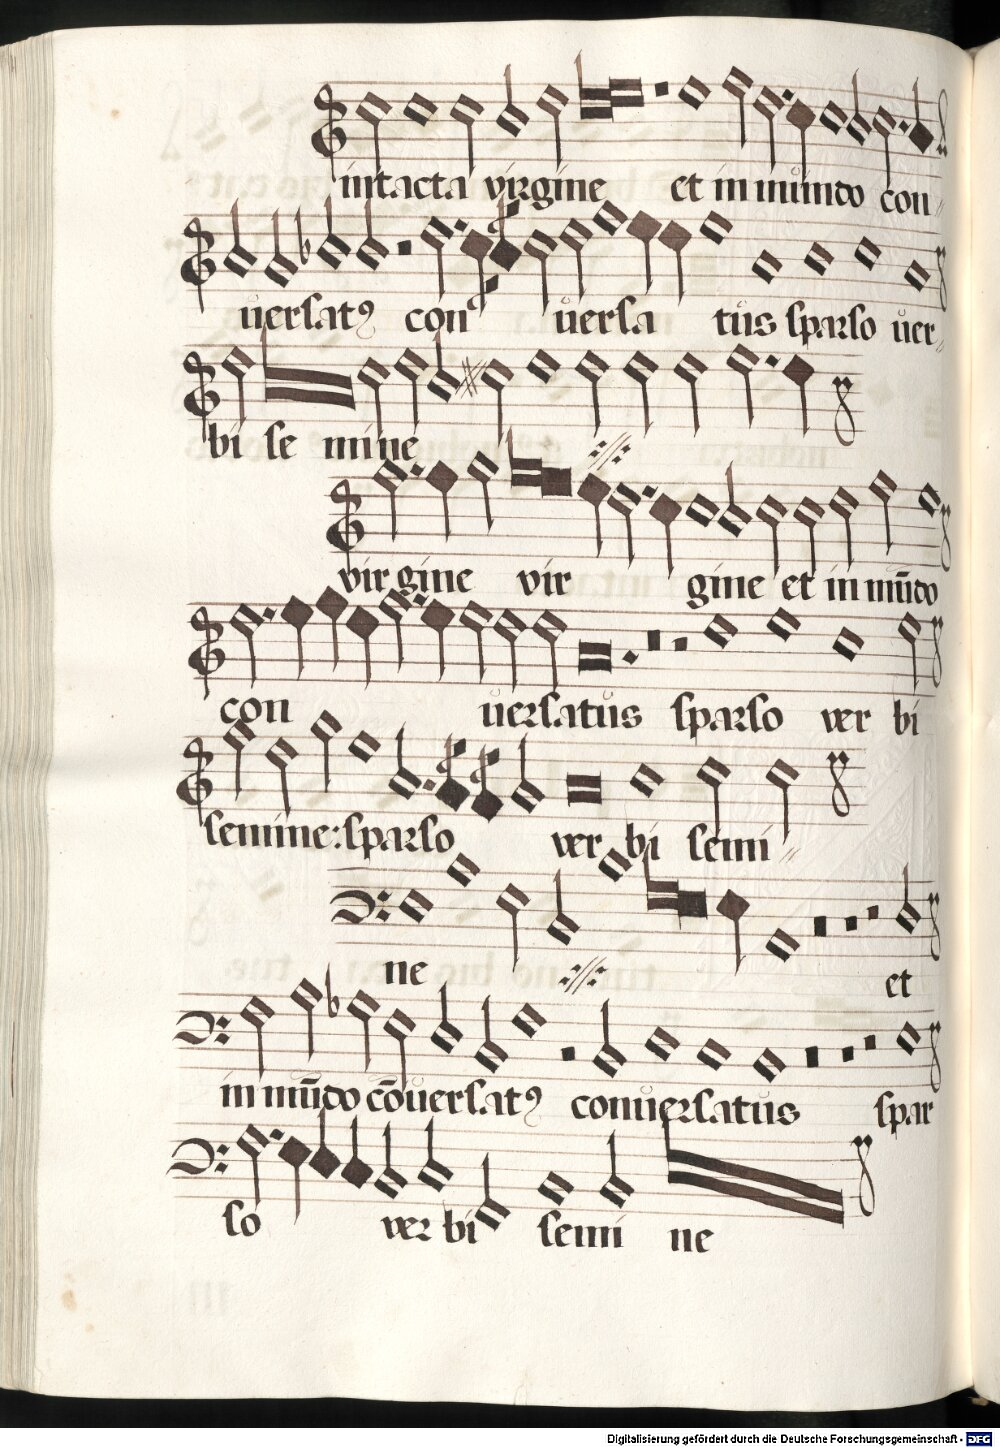 intacta virgine et in mundo con
uersatꝰ con uersa tus sparso uer
bi se mine
vir gine vir gine et in mūdo
con uersatus sparso ver bi
semine: sparso ver bi semi
ne et
in mūdo cōuersatꝰ conuersatus spar
so ver bi semi ne
Digitalisierung gefördert durch die Deutsche Forschungsgemeinschaft - DFG